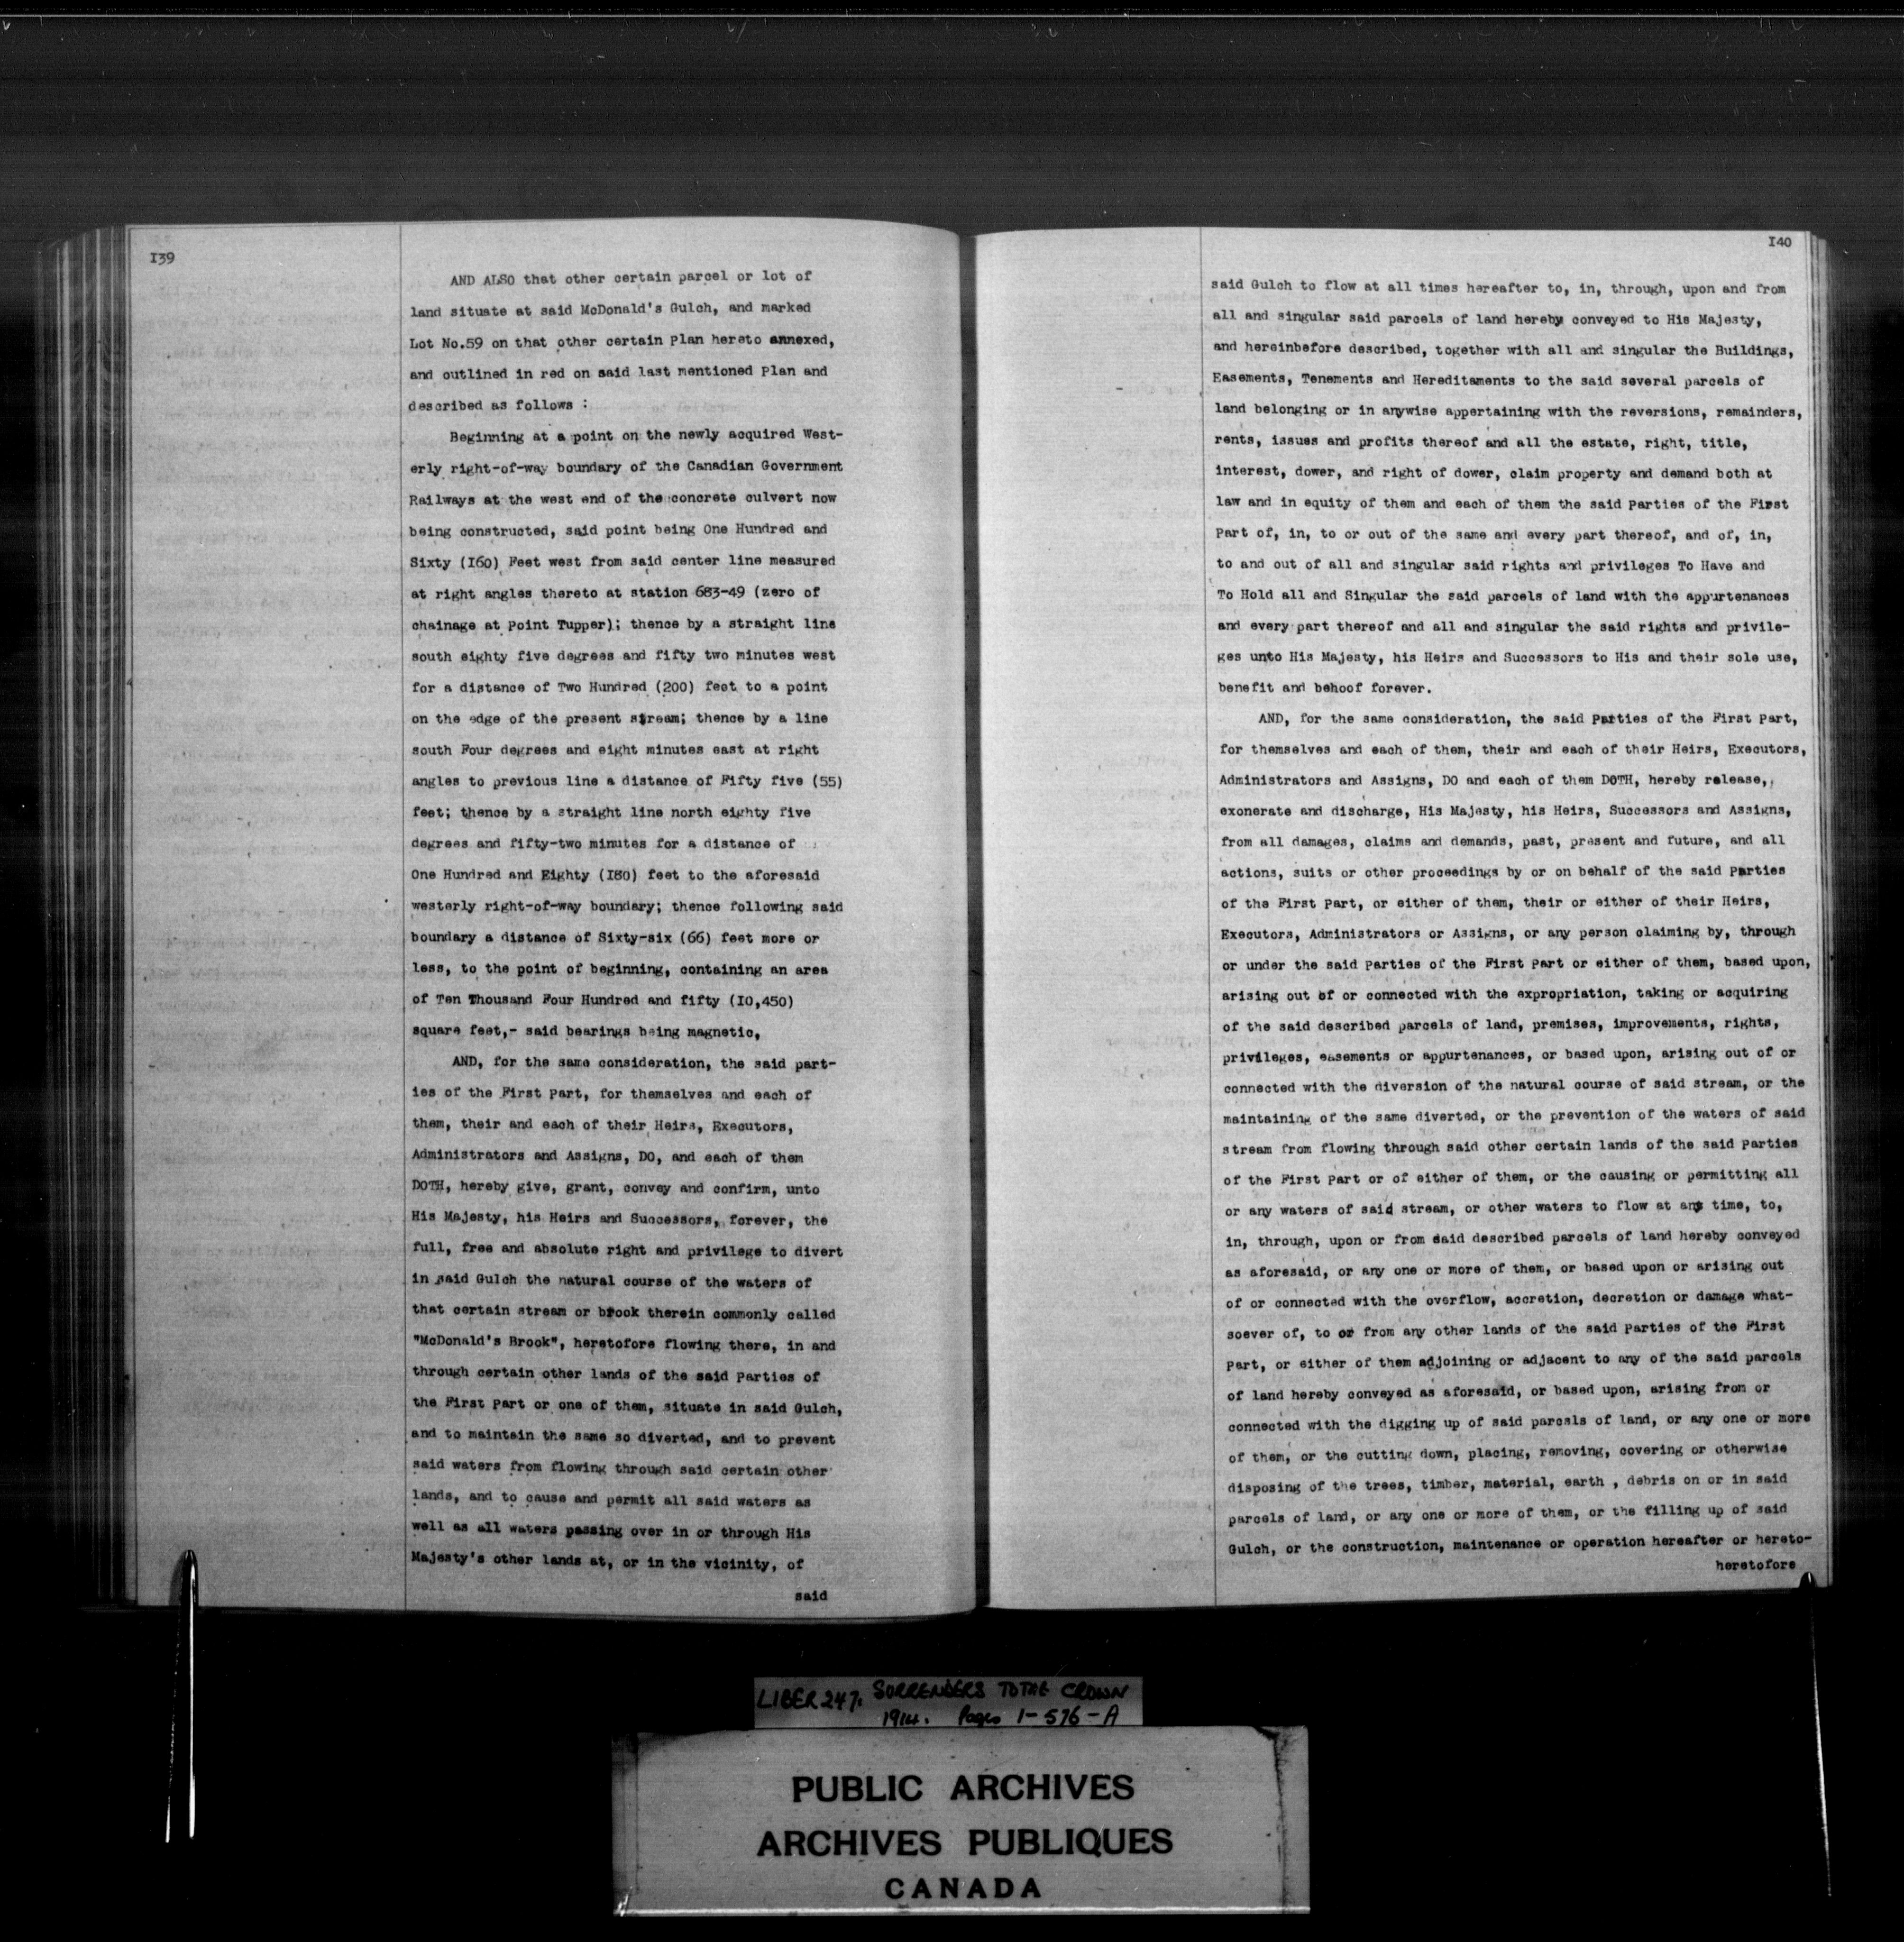 139
AND ALSO that other certain parcel or lot of
land situate at said McDonald's Gulch, and marked
Lot No.59 on that other certain Plan hereto annexed,
and outlined in red on said last mentioned Plan and
described as follows :
Beginning at a point on the newly acquired West-
erly right-of-way boundary of the Canadian Government
Railways at the west end of the concrete culvert now
being constructed, said point being One Hundred and
Sixty (I60) Feet west from said center line measured
at right angles thereto at station 683-49 (zero of
chainage at Point Tupper); thence by a straight line
south eighty five degrees and fifty two minutes west
for a distance of Two Hundred (200) feet to a point
on the edge of the present stream; thence by a line
south Four degrees and eight minutes east at right
angles to previous line a distance of Fifty five (55)
feet; thence by a straight line north eighty five
degrees and fifty-two minutes for a distance of
One Hundred and Eighty (I80) feet to the aforesaid
westerly right-of-way boundary; thence following said
boundary a distance of Sixty-six (66) feet more or
less, to the point of beginning, containing an area
of Ten Thousand Four Hundred and fifty (I0,450)
square feet,- said bearings being magnetic,
AND, for the same consideration, the said part-
ies of the First Part, for themselves and each of
them, their and each of their Heirs, Executors,
Administrators and Assigns, DO, and each of them
DOTH, hereby give, grant, convey and confirm, unto
His Majesty, his Heirs and Successors, forever, the
full, free and absolute right and privilege to divert
in said Gulch the natural course of the waters of
that certain stream or brook therein commonly called
"McDonald's Brook", heretofore flowing there, in and
through certain other lands of the said Parties of
the First Part or one of them, situate in said Gulch,
and to maintain the same so diverted, and to prevent
said waters from flowing through said certain other
lands, and to cause and permit all said waters as
well as all waters passing over in or through His
Majesty's other lands at, or in the vicinity, of
said
I40
said Gulch to flow at all times hereafter to, in, through, upon and from
all and singular said parcels of land hereby conveyed to His Majesty,
and hereinbefore described, together with all and singular the Buildings,
Easements, Tenements and Hereditaments to the said several parcels of
land belonging or in anywise appertaining with the reversions, remainders,
rents, issues and profits thereof and all the estate, right, title,
interest, dower, and right of dower, claim property and demand both at
law and in equity of them and each of them the said Parties of the First
Part of, in, to or out of the same and every part thereof, and of, in,
to and out of all and singular said rights and privileges To Have and
To Hold all and Singular the said parcels of land with the appurtenances
and every part thereof and all and singular the said rights and privile-
ges unto His Majesty, his Heirs and Successors to His and their sole use,
benefit and behoof forever.
AND, for the same consideration, the said Parties of the First Part,
for themselves and each of them, their and each of their Heirs, Executors,
Administrators and Assigns, DO and each of them DOTH, hereby release,
exonerate and discharge, His Majesty, his Heirs, Successors and Assigns,
from all damages, claims and demands, past, present and future, and all
actions, suits or other proceedings by or on behalf of the said Parties
of the First Part, or either of them, their or either of their Heirs,
Executors, Administrators or Assigns, or any person claiming by, through
or under the said Parties of the First Part or either of them, based upon,
arising out of or connected with the expropriation, taking or acquiring
of the said described parcels of land, premises, improvements, rights,
privileges, easements or appurtenances, or based upon, arising out of or
connected with the diversion of the natural course of said stream, or the
maintaining of the same diverted, or the prevention of the waters of said
stream from flowing through said other certain lands of the said Parties
of the First Part or of either of them, or the causing or permitting all
or any waters of said stream, or other waters to flow at any time, to,
in, through, upon or from said described parcels of land hereby conveyed
as aforesaid, or any one or more of them, or based upon or arising out
of or connected with the overflow, accretion, decretion or damage what-
soever of, to or from any other lands of the said Parties of the First
Part, or either of them adjoining or adjacent to any of the said parcels
of land hereby conveyed as aforesaid, or based upon, arising from or
connected with the digging up of said parcels of land, or any one or more
of them, or the cutting down, placing, removing, covering or otherwise
disposing of the trees, timber, material, earth , debris on or in said
parcels of land, or any one or more of them, or the filling up of said
Gulch, or the construction, maintenance or operation hereafter or hereto-
heretofore
LIBER 247. SURRENDERS TO THE CROWN
1914. Pages 1-576-A
PUBLIC ARCHIVES
ARCHIVES PUBLIQUES
CANADA